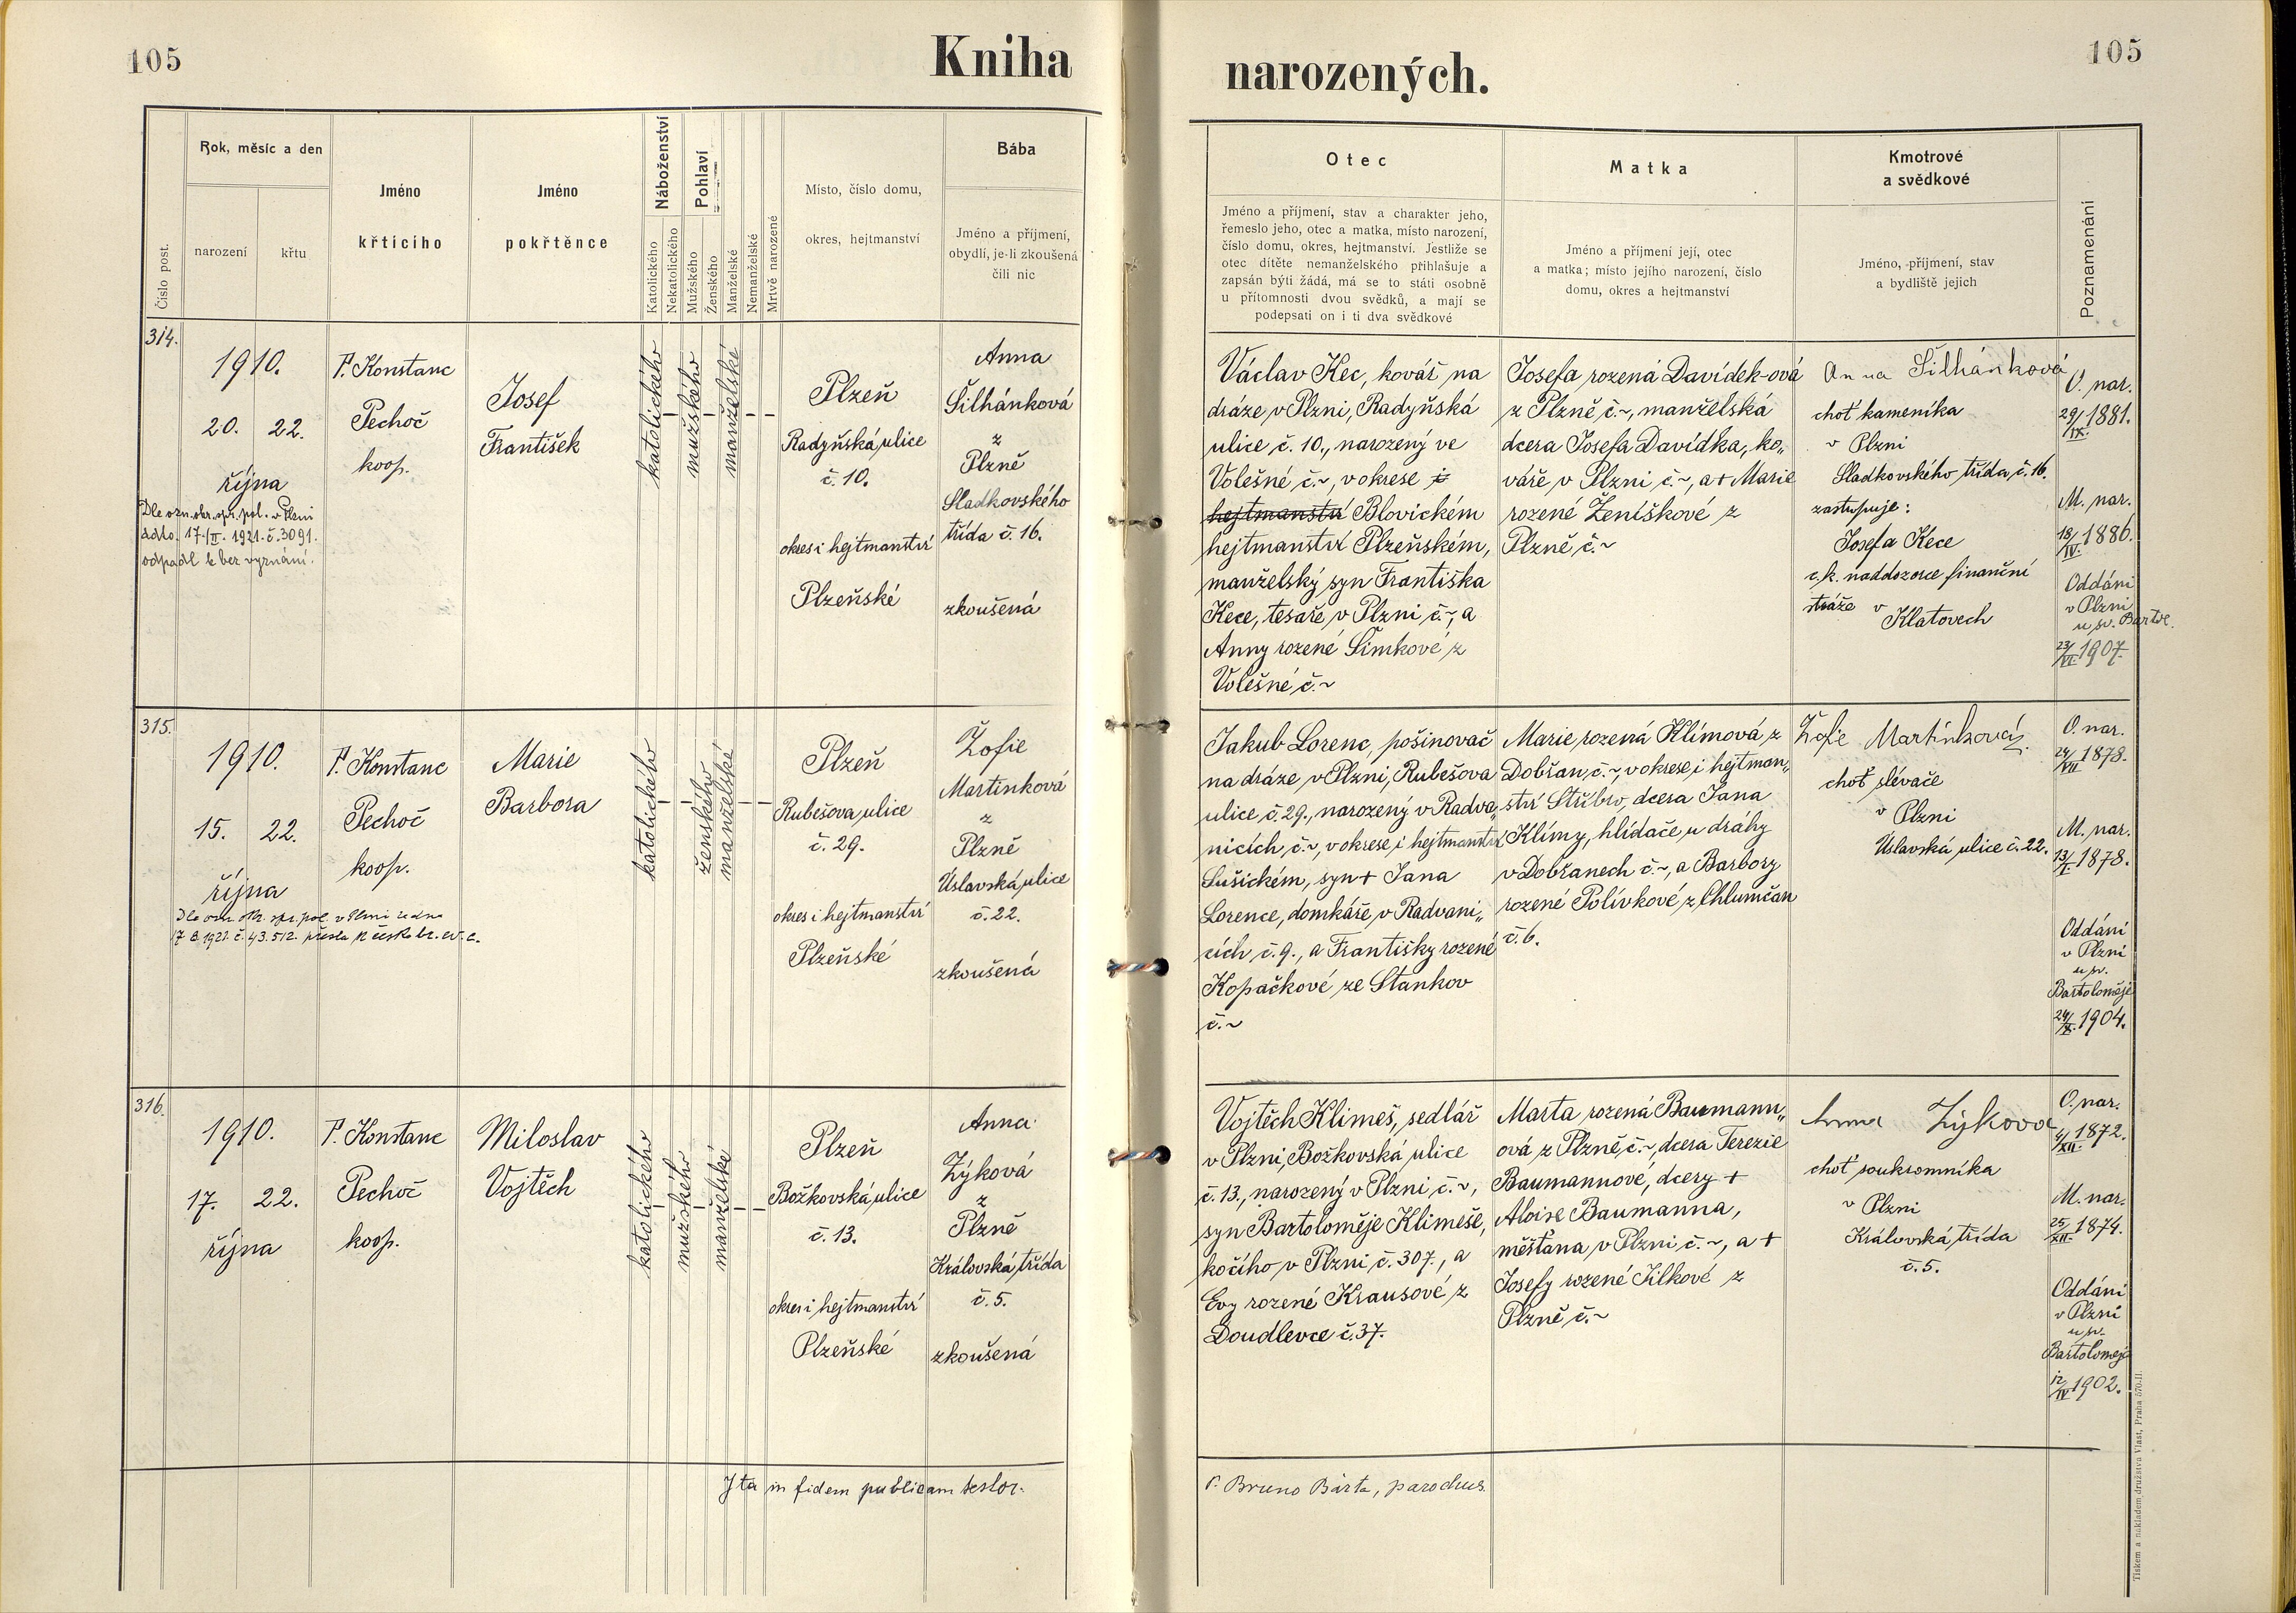 105
Kniha
narozených.
105
Číslo post.
Rok, měsíc a den
narození
křtu
Jméno
křticího
Jméno
pokřtěnce
Náboženství
Katolického
Nekatolického
Pohlaví
Mužského
Ženského
Manželské
Nemanželské
Mrtvě narozené
Místo, číslo domu,
okres, hejtmanství
Bába
Jméno a příjmení,
obydlí, je-li zkoušená
čili nic
Otec
Jméno a příjmení, stav a charakter jeho,
řemeslo jeho, otec a matka, místo narození,
číslo domu, okres, hejtmanství. Jestliže se
otec dítěte nemanželského přihlašuje a
zapsán býti žádá, má se to státi osobně
u přítomnosti dvou svědků, a mají se
podepsati on i ti dva svědkové
Matka
Jméno a příjmení její, otec
a matka; místo jejího narození, číslo
domu, okres a hejtmanství
Kmotrové
a svědkové
Jméno, příjmení, stav
a bydliště jejich
Poznamenání
314.
1910.
20. 22.
října
Dle ozn. okr. spr. pol. v Plzni
ddto. 17./II. 1921. č. 3091.
odpadl k bez vyznání.
P. Konstanc
Pechoč
koop.
Josef
František
katolického
–
mužského
–
manželské
–
–
Plzeň
Radyňská ulice
č. 10.
okres i hejtmanství
Plzeňské
Anna
Šilhánková
z
Plzně
Sladkovského
třída č. 16.
zkoušená
Václav Kec, kovář na
dráze v Plzni, Radyňská
ulice č. 10., narozený ve
Volešné č.~, v okrese i
hejtmanství Blovickém
hejtmanství Plzeňském,
manželský syn Františka
Kece, tesaře v Plzni č.~, a
Anny rozené Šimkové z
Volešné č.~
Josefa rozená Davídek-ová
z Plzně č.~, manželská
dcera Josefa Davídka, ko„
váře v Plzni č.~, a + Marie
rozené Ženíškové z
Plzně č.~
Anna Šilhánková
choť kameníka
v Plzni
Sladkovského třída, č. 16.
zastupuje:
Josefa Kece
c. k. naddozorce finanční
stráže v
Klatovech
O. nar.
29/IX. 1881.
M. nar.
18/IV. 1886.
Oddáni
v Plzni
u sv. Bartol.
23/VI. 1907.
315.
1910.
15. 22.
října
Dle ozn. okr. spr. pol. v Plzni ze dne
č. 43.512. přešla k česko br. ev. c.
P. Konstanc
Pechoč
koop.
Marie
Barbora
katolického
–
–
ženského
manželské
–
–
Plzeň
Rubešova ulice
č. 29.
okres i hejtmanství
Plzeňské
Žofie
Martínková
z
Plzně
Úslavská ulice
č. 22.
zkoušená
Jakub Lorenc, pošinovač
na dráze v Plzni, Rubešova
ulice č. 29., narozený v Radva„
nicích č.~, v okrese i hejtmanství
Sušickém, syn + Jana
Lorence, domkáře v Radvani„
cích č. 9., a Františky rozené
Kopačkové ze Stankov
č.~
Marie rozená Klímová z
Dobřan č.~, v okrese i hejtman„
ství Stříbro, dcera Jana
Klímy, hlídače u dráhy
v Dobřanech č.~, a Barbory
rozené Polívkové z Chlumčan
č. 6.
Žofie Martínková
choť slévače
v Plzni
Úslavská ulice č. 22.
O. nar.
24/VII. 1878.
M. nar.
13/I. 1878.
Oddáni
v Plzni
u sv.
Bartoloměje
24/X. 1904.
316.
1910.
17. 22.
října
P. Konstanc
Pechoč
koop.
Miloslav
Vojtěch
katolického
–
mužského
–
manželské
–
–
Plzeň
Božkovská ulice
č. 13.
okres i hejtmanství
Plzeňské
Anna
Zýková
z
Plzně
Královská třída
č. 5.
zkoušená
Vojtěch Klimeš, sedlář
v Plzni, Božkovská ulice
č. 13., narozený v Plzni č.~,
syn Bartoloměje Klimeše,
kočího v Plzni č. 307., a
Evy rozené Krausové z
Doudlevce č. 37.
Marta rozená Baumann„
ová z Plzně č.~, dcera Terezie
Baumannové, dcery +
Aloise Baumanna,
měšťana v Plzni č.~, a +
Josefy rozené Jílkové z
Plzně č.~
Anna Zýková
choť soukromníka
v Plzni
Královská třída
č. 5.
O. nar.
4/XII. 1872.
M. nar.
25/XII. 1874.
Oddáni
v Plzni
u sv.
Bartoloměje
12/IV 1902.
Ita in fidem publicam testor.
P. Bruno Bárta, parochus.
Tiskem a nákladem družstva Vlast, Praha 570-II.